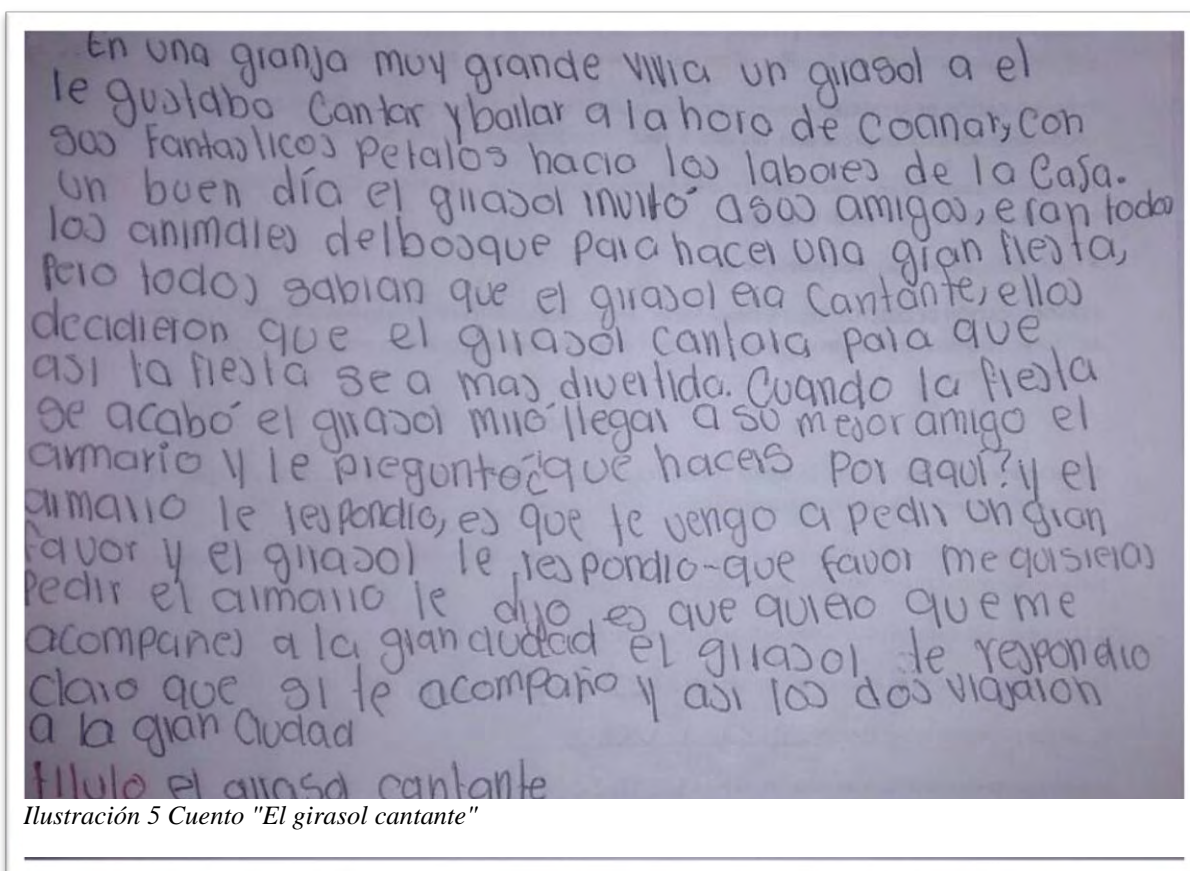 En una granja muy grande vivia un girasol a el
le gustaba Cantar y bailar a la hora de Cocinar, con
sus Fantasticos Petalos hacia los labores de la Casa.
un buen día el girasol invitó a sus amigos, eran todos
los animales delbosque para hacer una gran fiesta,
Pero todos sabian que el girasol era Cantante, ellos
decidieron que el girasol cantara para que
asi la fiesta sea mas divertida. Cuando la fiesta
se acabó el girasol miró llegar a su mejor amigo el
armario y le pregunto ¿qué haces Por aquí? y el
armario le respondio, es que te vengo a pedir un gran
Favor y el girasol le respondio-que favor me quisieras
Pedir el armario le dijo es que quiero queme
acompañes a la gran ciudad el girasol le respondio
Claro que si te acompaño y asi los dos viajaron
a la gran Ciudad
titulo el girasol cantante
Ilustración 5 Cuento "El girasol cantante"